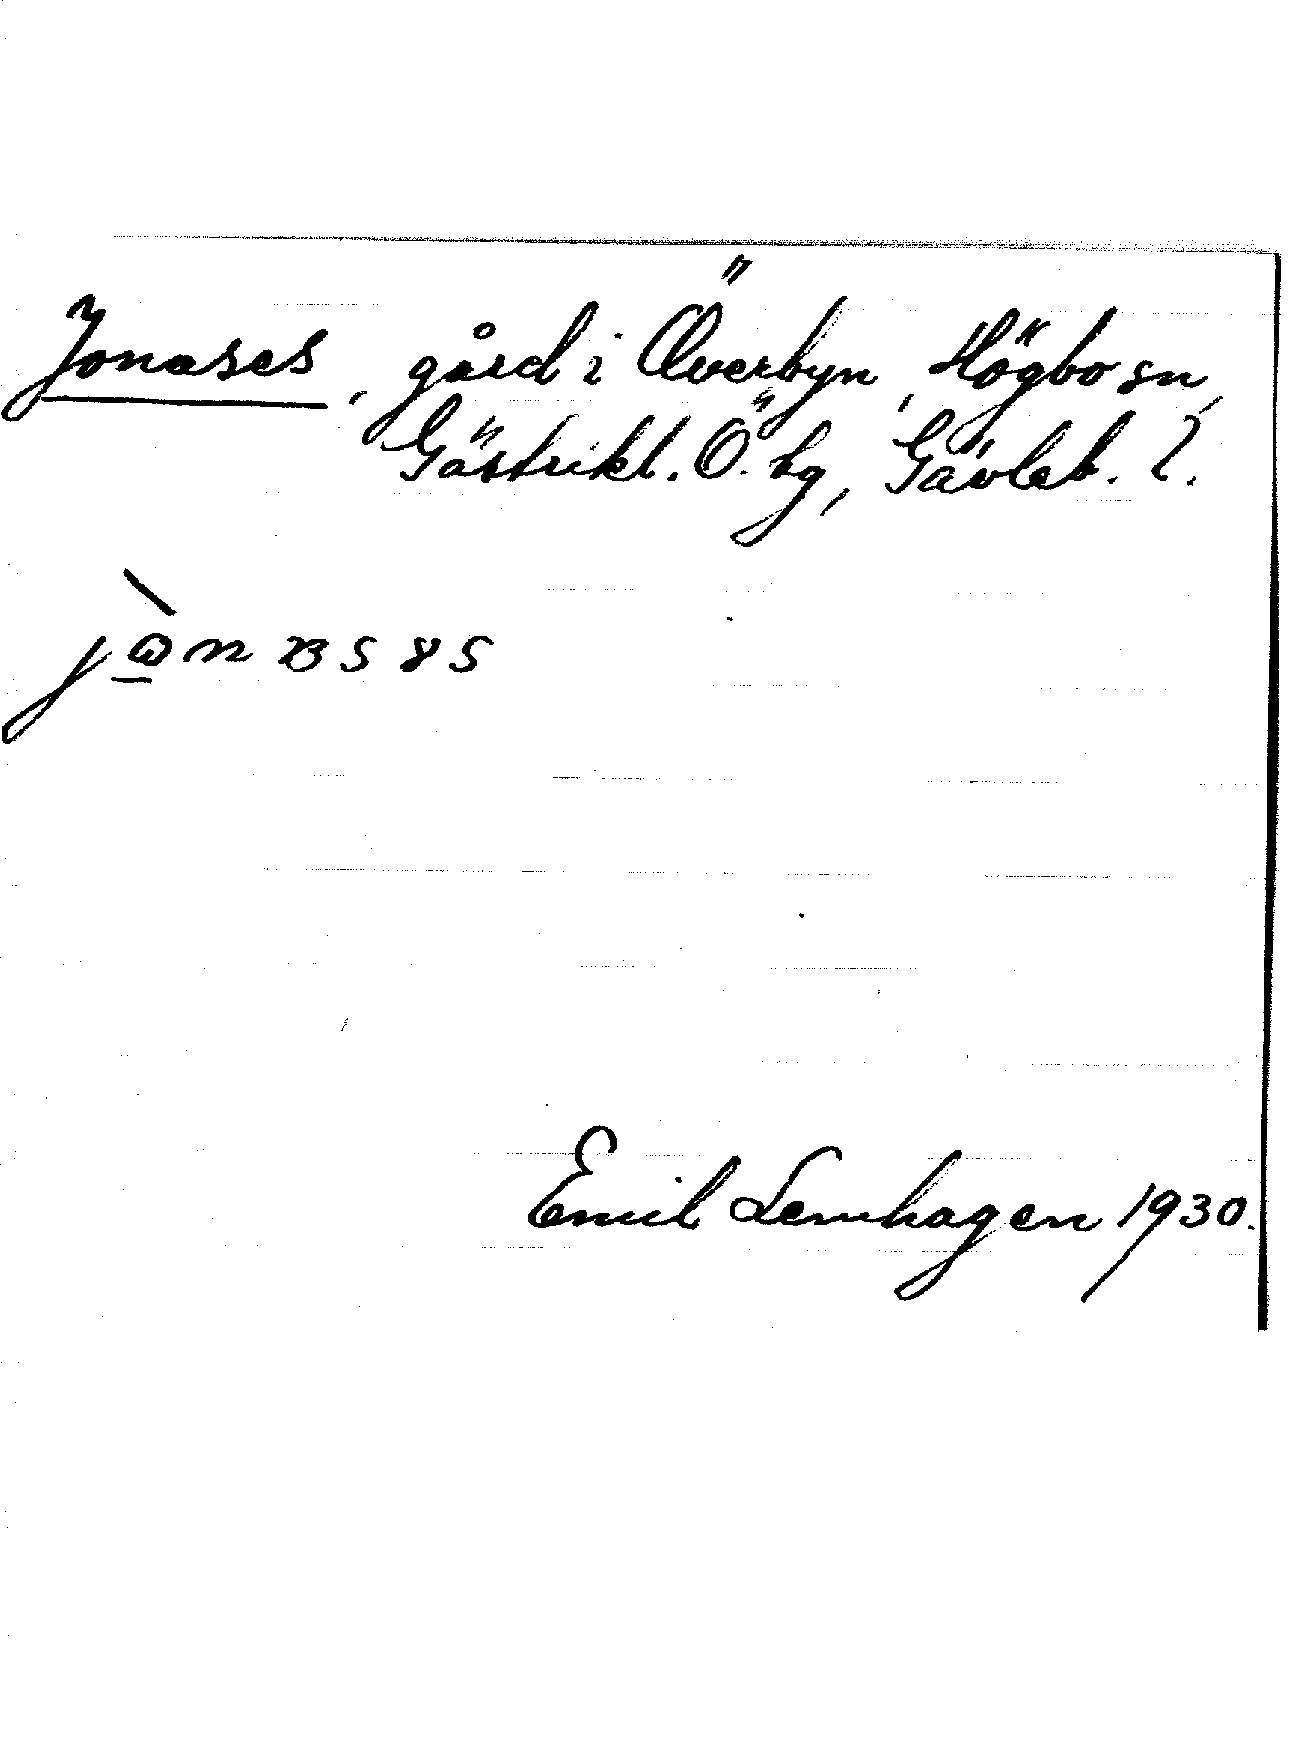 Jonases, gård i Överbyn, Högbo sn,
Gästrikl. Ö. hg, Gävleb. l.
Emil Lennhagen 1930.